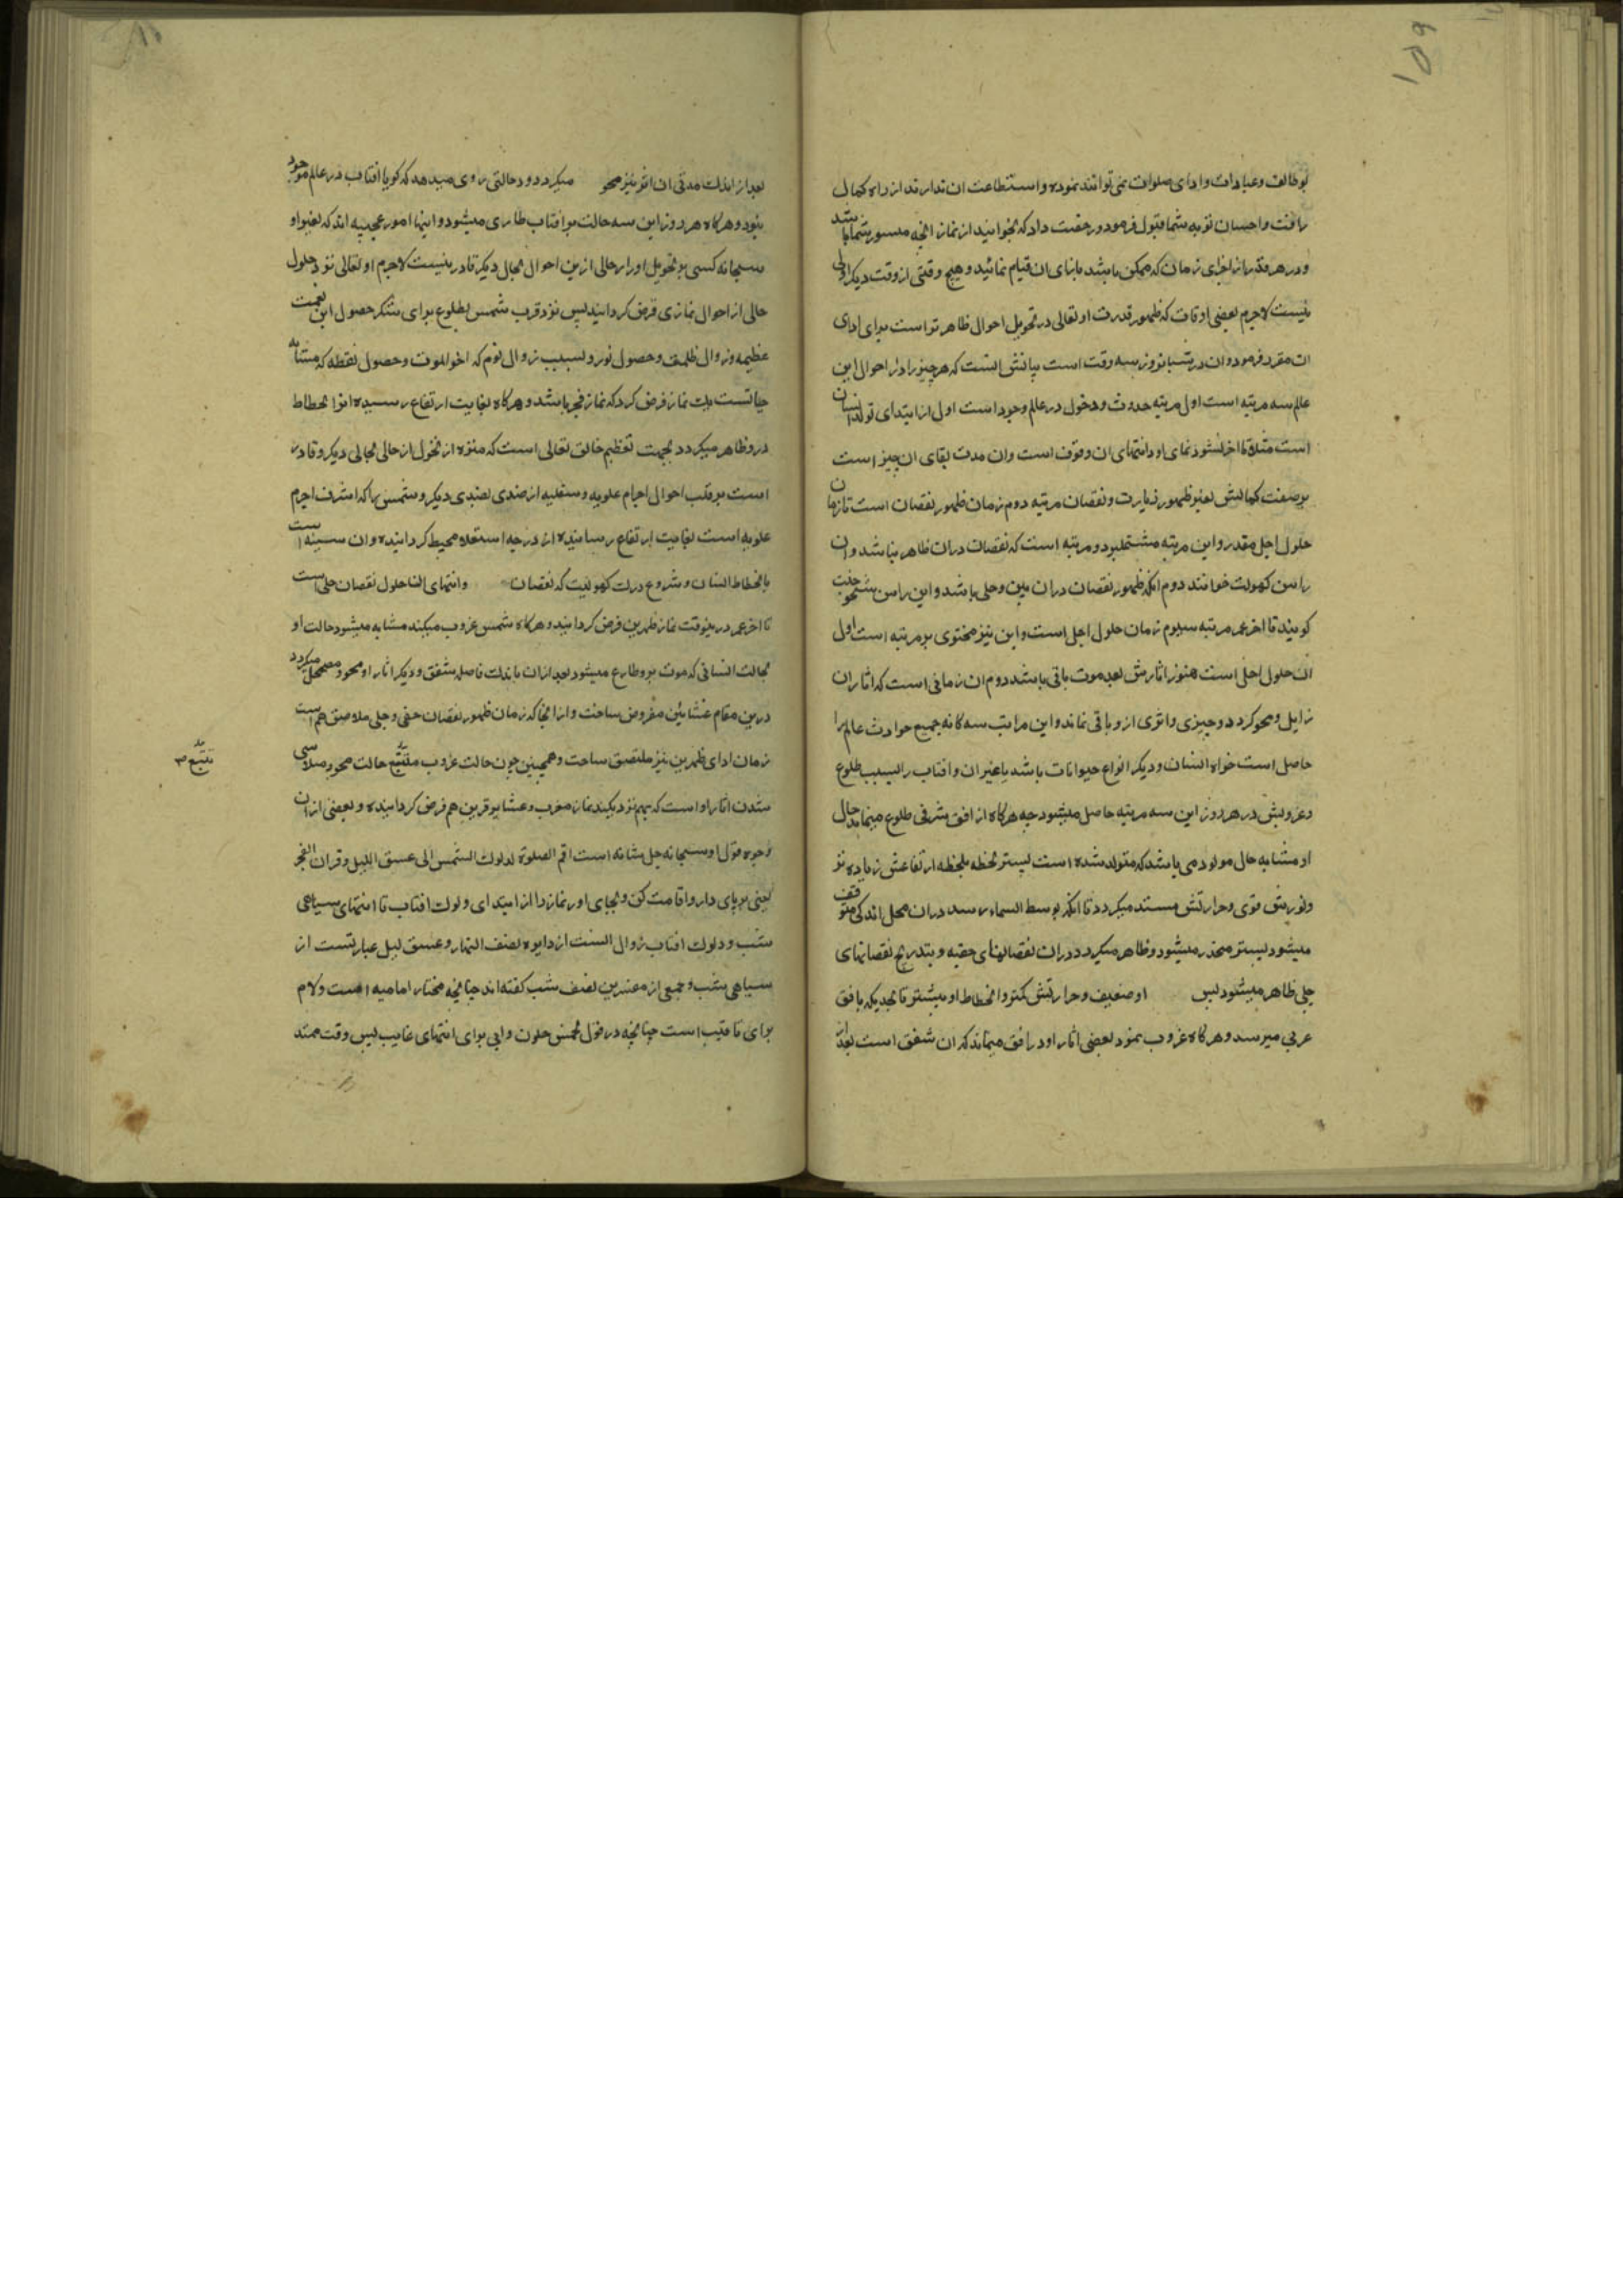 ۱۵۹
بوظائف وعبادات وادای صلوات نمی توانند نموده واستطاعت ان ندارند از راه کمال
رافت واحسان توبه شما قبول فرمود ورخصت داد که بخوانید از نماز انچه میسور شما باشد
ودر هر قدر از اجزای زمان که ممکن باشد بادای ان قیام نمائید وهیچ وقتی از وقت دیکر اولی
نیست لاجرم بعضی اوقات که ظهور قدرت او تعالی در تحویل احوال ظاهر تر است برای ادای
ان مقرر فرمود وان در شبانروز سه وقت است بیانش انست که هر چیز را در احوال این
عالم سه مرتبه است اول مرتبه حدوث ودخول در عالم وجود است اول از ابتدای تولد انسان
است مثلا تا اخر نشو ونمای او وانتهای ان وقوف است وان مدت بقای ان چیز است
بر صفت کمالش بغیر ظهور زیادت ونقصان مرتبه دوم زمان ظهور نقصان است تا زمان
حلول اجل مقدر واین مرتبه مشتمل بر دو مرتبه است که نقصان دران ظاهر نباشد وان
را سن کهولت خوانند دوم انکه ظهور نقصان دران مبین وجلی باشد واین را سن شیخوخت
کویند تا اخر عمر مرتبه سیوم زمان حلول اجل است واین نیز محتوی بر مرتبه است اول
ان حلول اجل است هنوز اثارش بعد موت باقی باشد دوم ان زمانی است که اثار ان
زایل ومحو کردد وچیزی واثری ازو باقی نماند واین مراتب سه کانه جمیع حوادث عالم را
حاصل است خواه انسان ودیکر انواع حیوانات باشد یا غیر ان وافتاب را بسبب طلوع
وغروبش در هر روز این سه مرتبه حاصل میشود چه هرکاه از افق شرقی طلوع مینماید حال
او مشابه حال مولودی باشد که متولد شده است پستر لحظه بلحظه ارتفاعش زیاده تر
ونورش قوی وحرارتش مستند میکردد تا انکه بوسط السماء رسد دران محل اندکی متوقف
میشود پستر منحدر میشود وظاهر میکردد دران نقصانهای خفیه وبتدریج نقصانهای
جلی ظاهر میشود پس او ضعیف وحرارتش کمتر وانحطاط او بیشتر تا بحدیکه بافق
غربی میرسد وهرکاه غروب نمود بعضی اثار او در افق میماند که ان شفق است بعد از
بعد از اندک مدتی ان اثر نیز محو میکردد ودر حالتی روی میدهد که کویا افتاب در عالم موجود
نبود وهرکاه هر روز این سه حالت بر افتاب طاری میشود واینها امور عجیبه اند که بغیر او
سبحانه کسی بر تحویل او از حالی ازین احوال بحال دیکر قادر نیست لاجرم او تعالی نزد حلول
حالی از احوال نمازی فرض کردانید پس نزد قرب شمس بطلوع برای شکر حصول این نعمت
عظیمه وزوال ظلمت وحصول نور وبسبب زوال نوم که اخو الموت وحصول یقظه که مشابه
حیاتست یک نماز فرض کرد که نماز فجر باشد وهرکاه بغایت ارتفاع رسیده اثر انحطاط
درو ظاهر میکردد بجهت تعظیم خالق تعالی است که منزه از تحول از حالی بحالی دیکر وقادر
است بر قلب احوال اجرام علویه وسفلیه از ضدی بضدی دیکر وشمس را که اشرف اجرام
علویه است بغایت ارتفاع رسانیده از درجه استعلا محیط کردانیده وان سنیه است
بانحطاط انسان وشروع در سن کهولیت که نقصان وانتهای انتا حلول نقصان جلی است
تا اخر عمر درینوقت نماز ظهرین فرض کردانید وهرکاه شمس غروب میکند مشابه میشود حالت او
بحالت انسانی که موت برو طاری میشود بعد ازان باندک فاصله شفق ودیکر اثار او محو ومضمحل میکردد
درین مقام عشائین مفروض ساخت واز انجا که زمان ظهور نقصان خفی وجلی ملاصق هم است
زمان ادای ظهرین نیز ملتصق ساخت وهمچنین چون حالت غروب متتبع حالت محو ومتلاشی
شدن اثار او است که بهم نزدیکند نماز مغرب وعشا بر قرین هم فرض کردانیده وبعضی ازان
وجوه قول او سبحانه جل شانه است اقم الصلوة لدلوک الشمس الی غسق اللیل وقران الفجر
یعنی بر پای دار واقامت کن وبجای اور نماز را از ابتدای دلوک افتاب تا انتهای سیاهی
شب ودلوک افتاب زوال انست از دایره نصف النهار وغسق لیل عبارتست از
سیاهی شب وجمعی از مفسرین نصف شب کفته اند چنانچه مختار امامیه است ولام
برای تاقیت است چنانچه در قول لخمس خلون والی برای انتهای غایت پس وقت ممتد
تتبع ۳